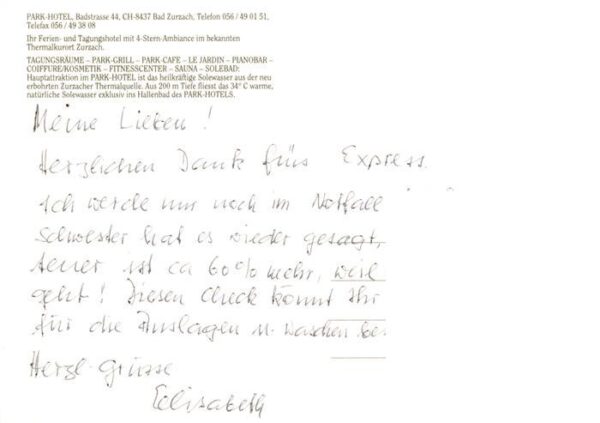 PARK-HOTEL, Badstrasse 44, CH-8437 Bad Zurzach, Telefon 056 / 49 01 51,
Telefax 056 / 49 38 08
Ihr Ferien- und Tagungshotel mit 4-Stern-Ambiance im bekannten
Thermalkurort Zurzach.
TAGUNGSRÄUME – PARK-GRILL – PARK-CAFE – LE JARDIN – PIANOBAR –
COIFFURE/KOSMETIK – FITNESSCENTER – SAUNA – SOLEBAD:
Hauptattraktion im PARK-HOTEL ist das heilkräftige Solewasser aus der neu
erbohrten Zurzacher Thermalquelle. Aus 200 m Tiefe fliesst das 34° C warme,
natürliche Solewasser exklusiv ins Hallenbad des PARK-HOTELS.
Meine Lieben !
Herzlichen Dank fürs Express.
Ich werde nur noch im Notfall
Schwester hat es wieder gesagt,
teuer ist ca 60% mehr, weil
geht ! Diesen Check könnt Ihr
für die Auslagen u. waschen be
Herzl. Grüsse
Elisabeth